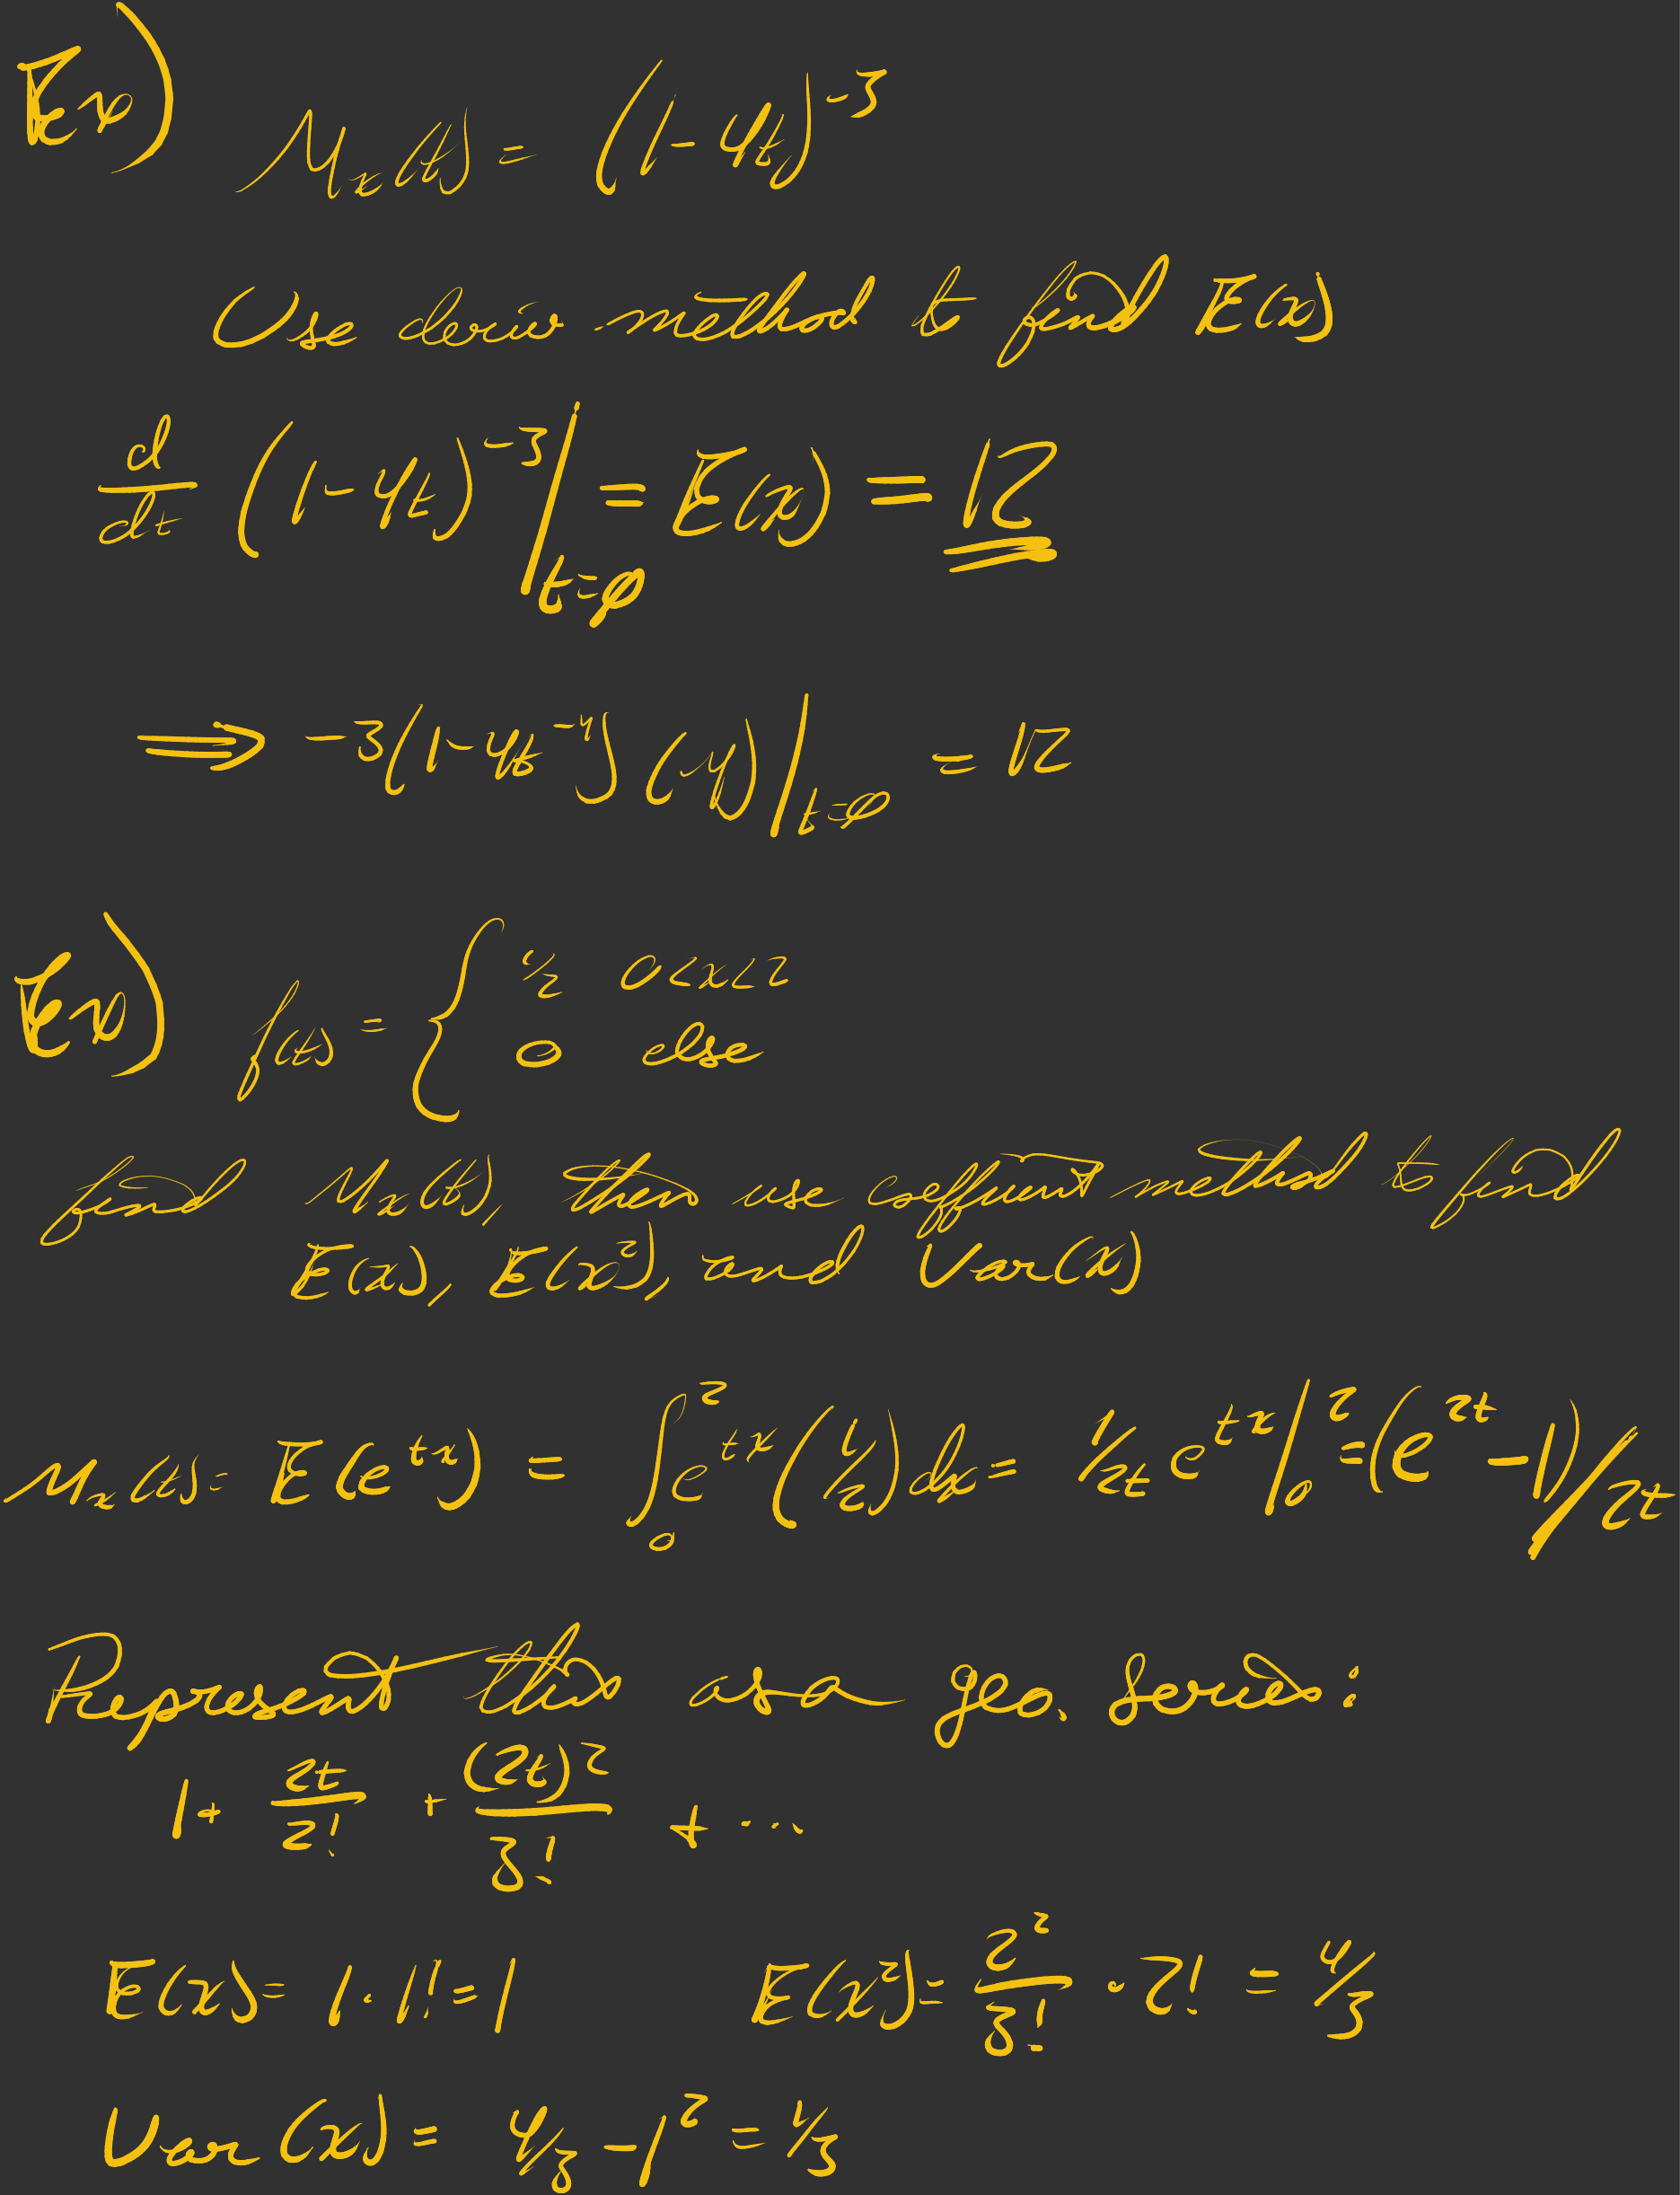 Ex) Mx(t) = (1-4t)^-3
Use deriv. method to find E(x)
d/dt (1-4t)^-3 |t=0 = E(x) = 12
⟹ -3(1-4t^-4)(-4)|t=0 = 12
Ex) f(x) = { 1/2 0<x<2
0 else
find Mx(t), then use coefficient method to find
E(x), E(x²), and Var(x)
Mx(t) = E(e^tx) = ∫₀² e^tx (1/2) dx = 1/2t e^tx |₀² = (e^2t - 1)/2t
Represent this as a geo. series:
1 + 2t/2! + (2t)²/3! + ...
E(x) = 1 · 1! = 1 E(x²) = 2²/3! · 2! = 4/3
Var(x) = 4/3 - 1² = 1/3